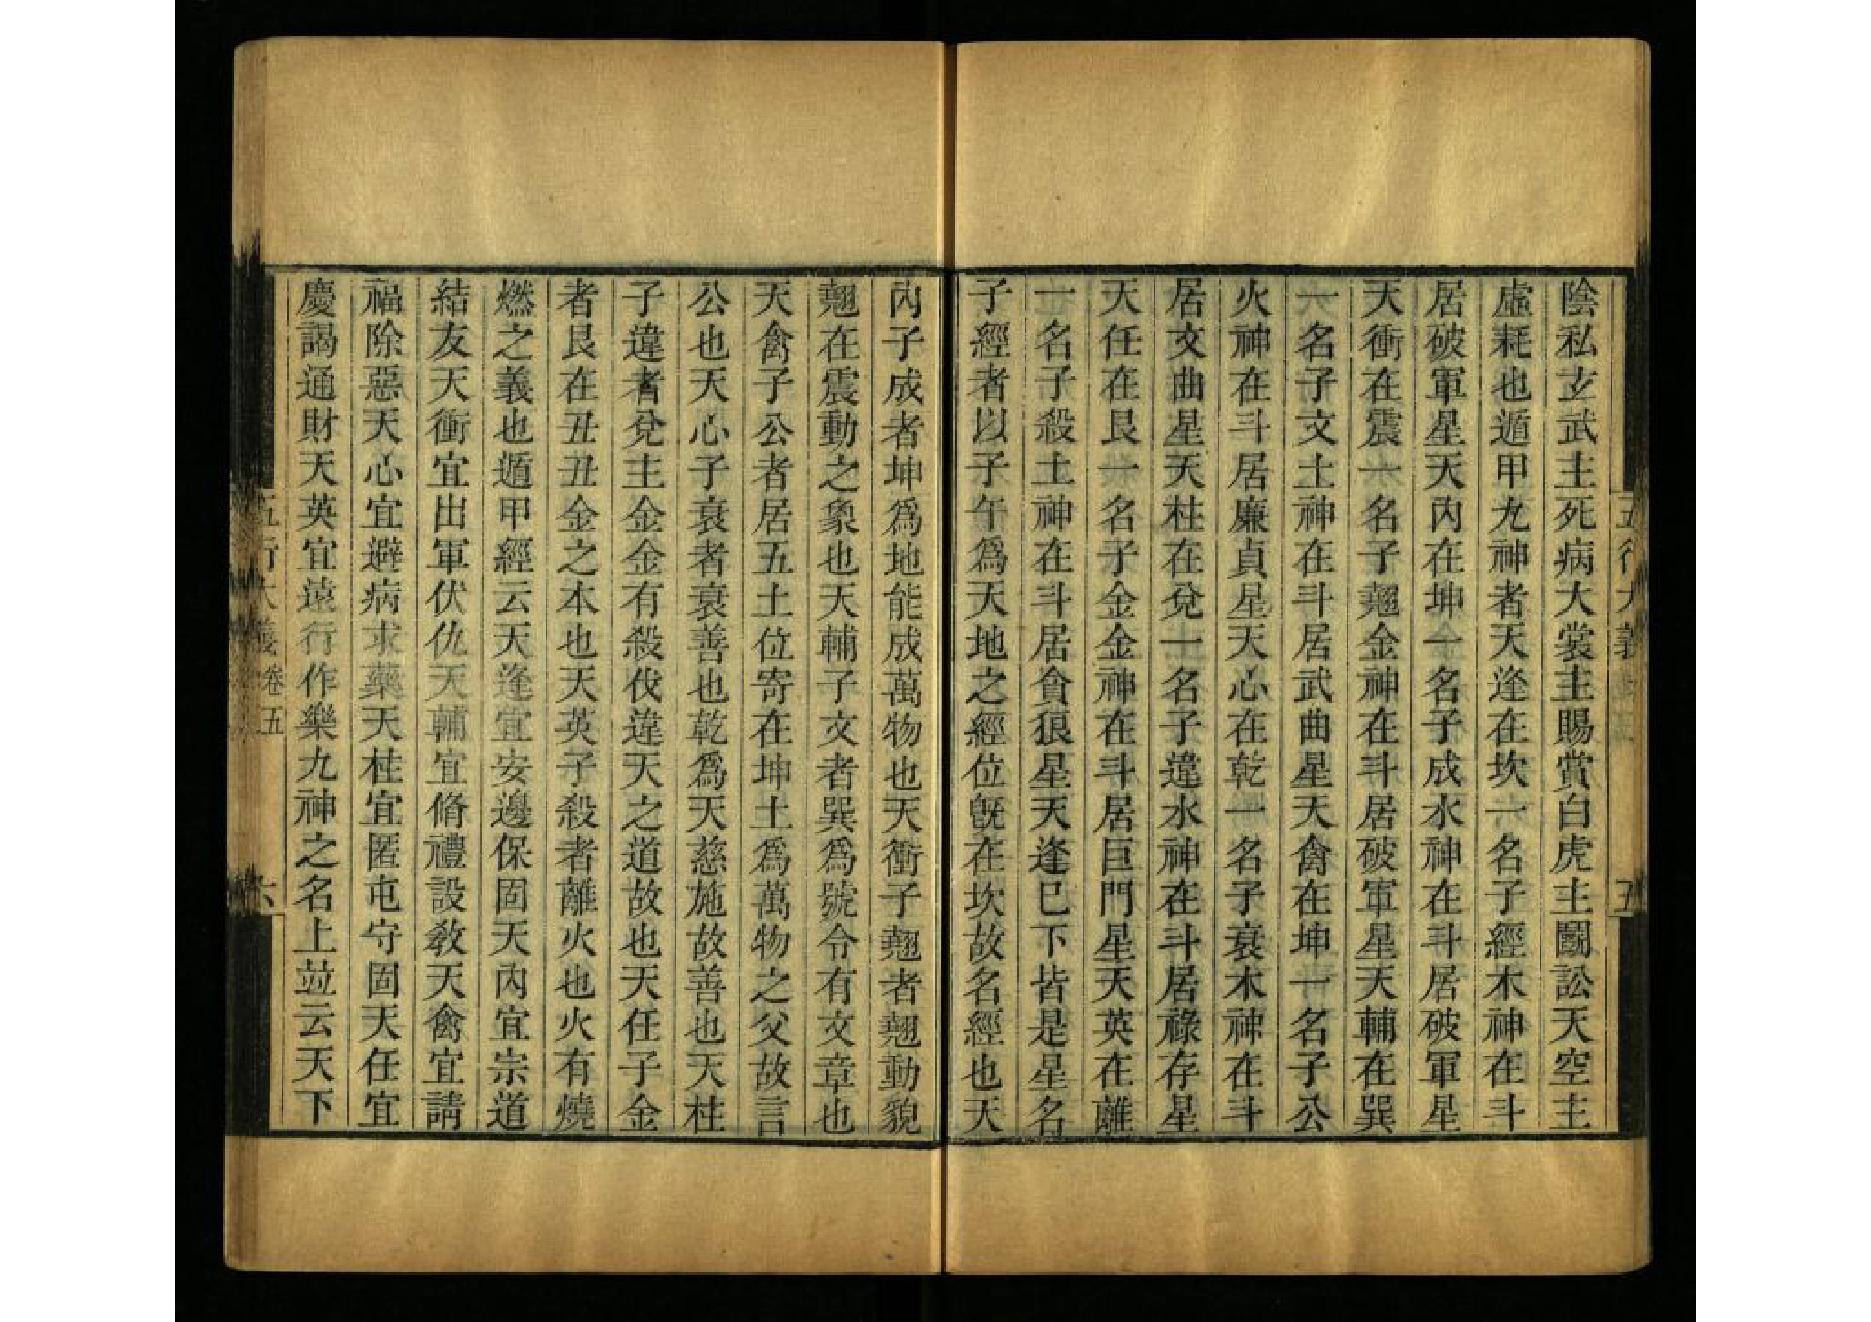 陰私玄武主死病大裳主賜賞白虎主鬭訟天空主
虛耗也遁甲九神者天逢在坎一名子經木神在斗
居破軍星天內在坤一名子成水神在斗居破軍星
天衝在震一名子翹金神在斗居破軍星天輔在巽
一名子文土神在斗居武曲星天禽在坤一名子公
火神在斗居廉貞星天心在乾一名子襄木神在斗
居文曲星天柱在兌一名子違水神在斗居祿存星
天任在艮一名子金金神在斗居巨門星天英在離
一名子殺土神在斗居貪狼星天逢巳下皆是星名
子經者以子午爲天地之經位既在坎故名經也天
內子成者坤爲地能成萬物也天衝子翹者翹動貌
翹在震動之象也天輔子文者巽爲號令有文章也
天禽子公者居五土位寄在坤土爲萬物之父故言
公也天心子襄者襄善也乾爲天慈施故善也天柱
子違者兌主金金有殺伐違天之道故也天任子金
者艮在丑丑金之本也天英子殺者離火也火有燒
燃之義也遁甲經云天逢宜安邊保固天內宜宗道
結友天衝宜出軍伏仇天輔宜脩禮設敎天禽宜請
福除惡天心宜避病求藥天柱宜匿屯守固天任宜
慶謁通財天英宜遠行作樂九神之名上竝云天下
五行大義 五
五行大義卷五 六